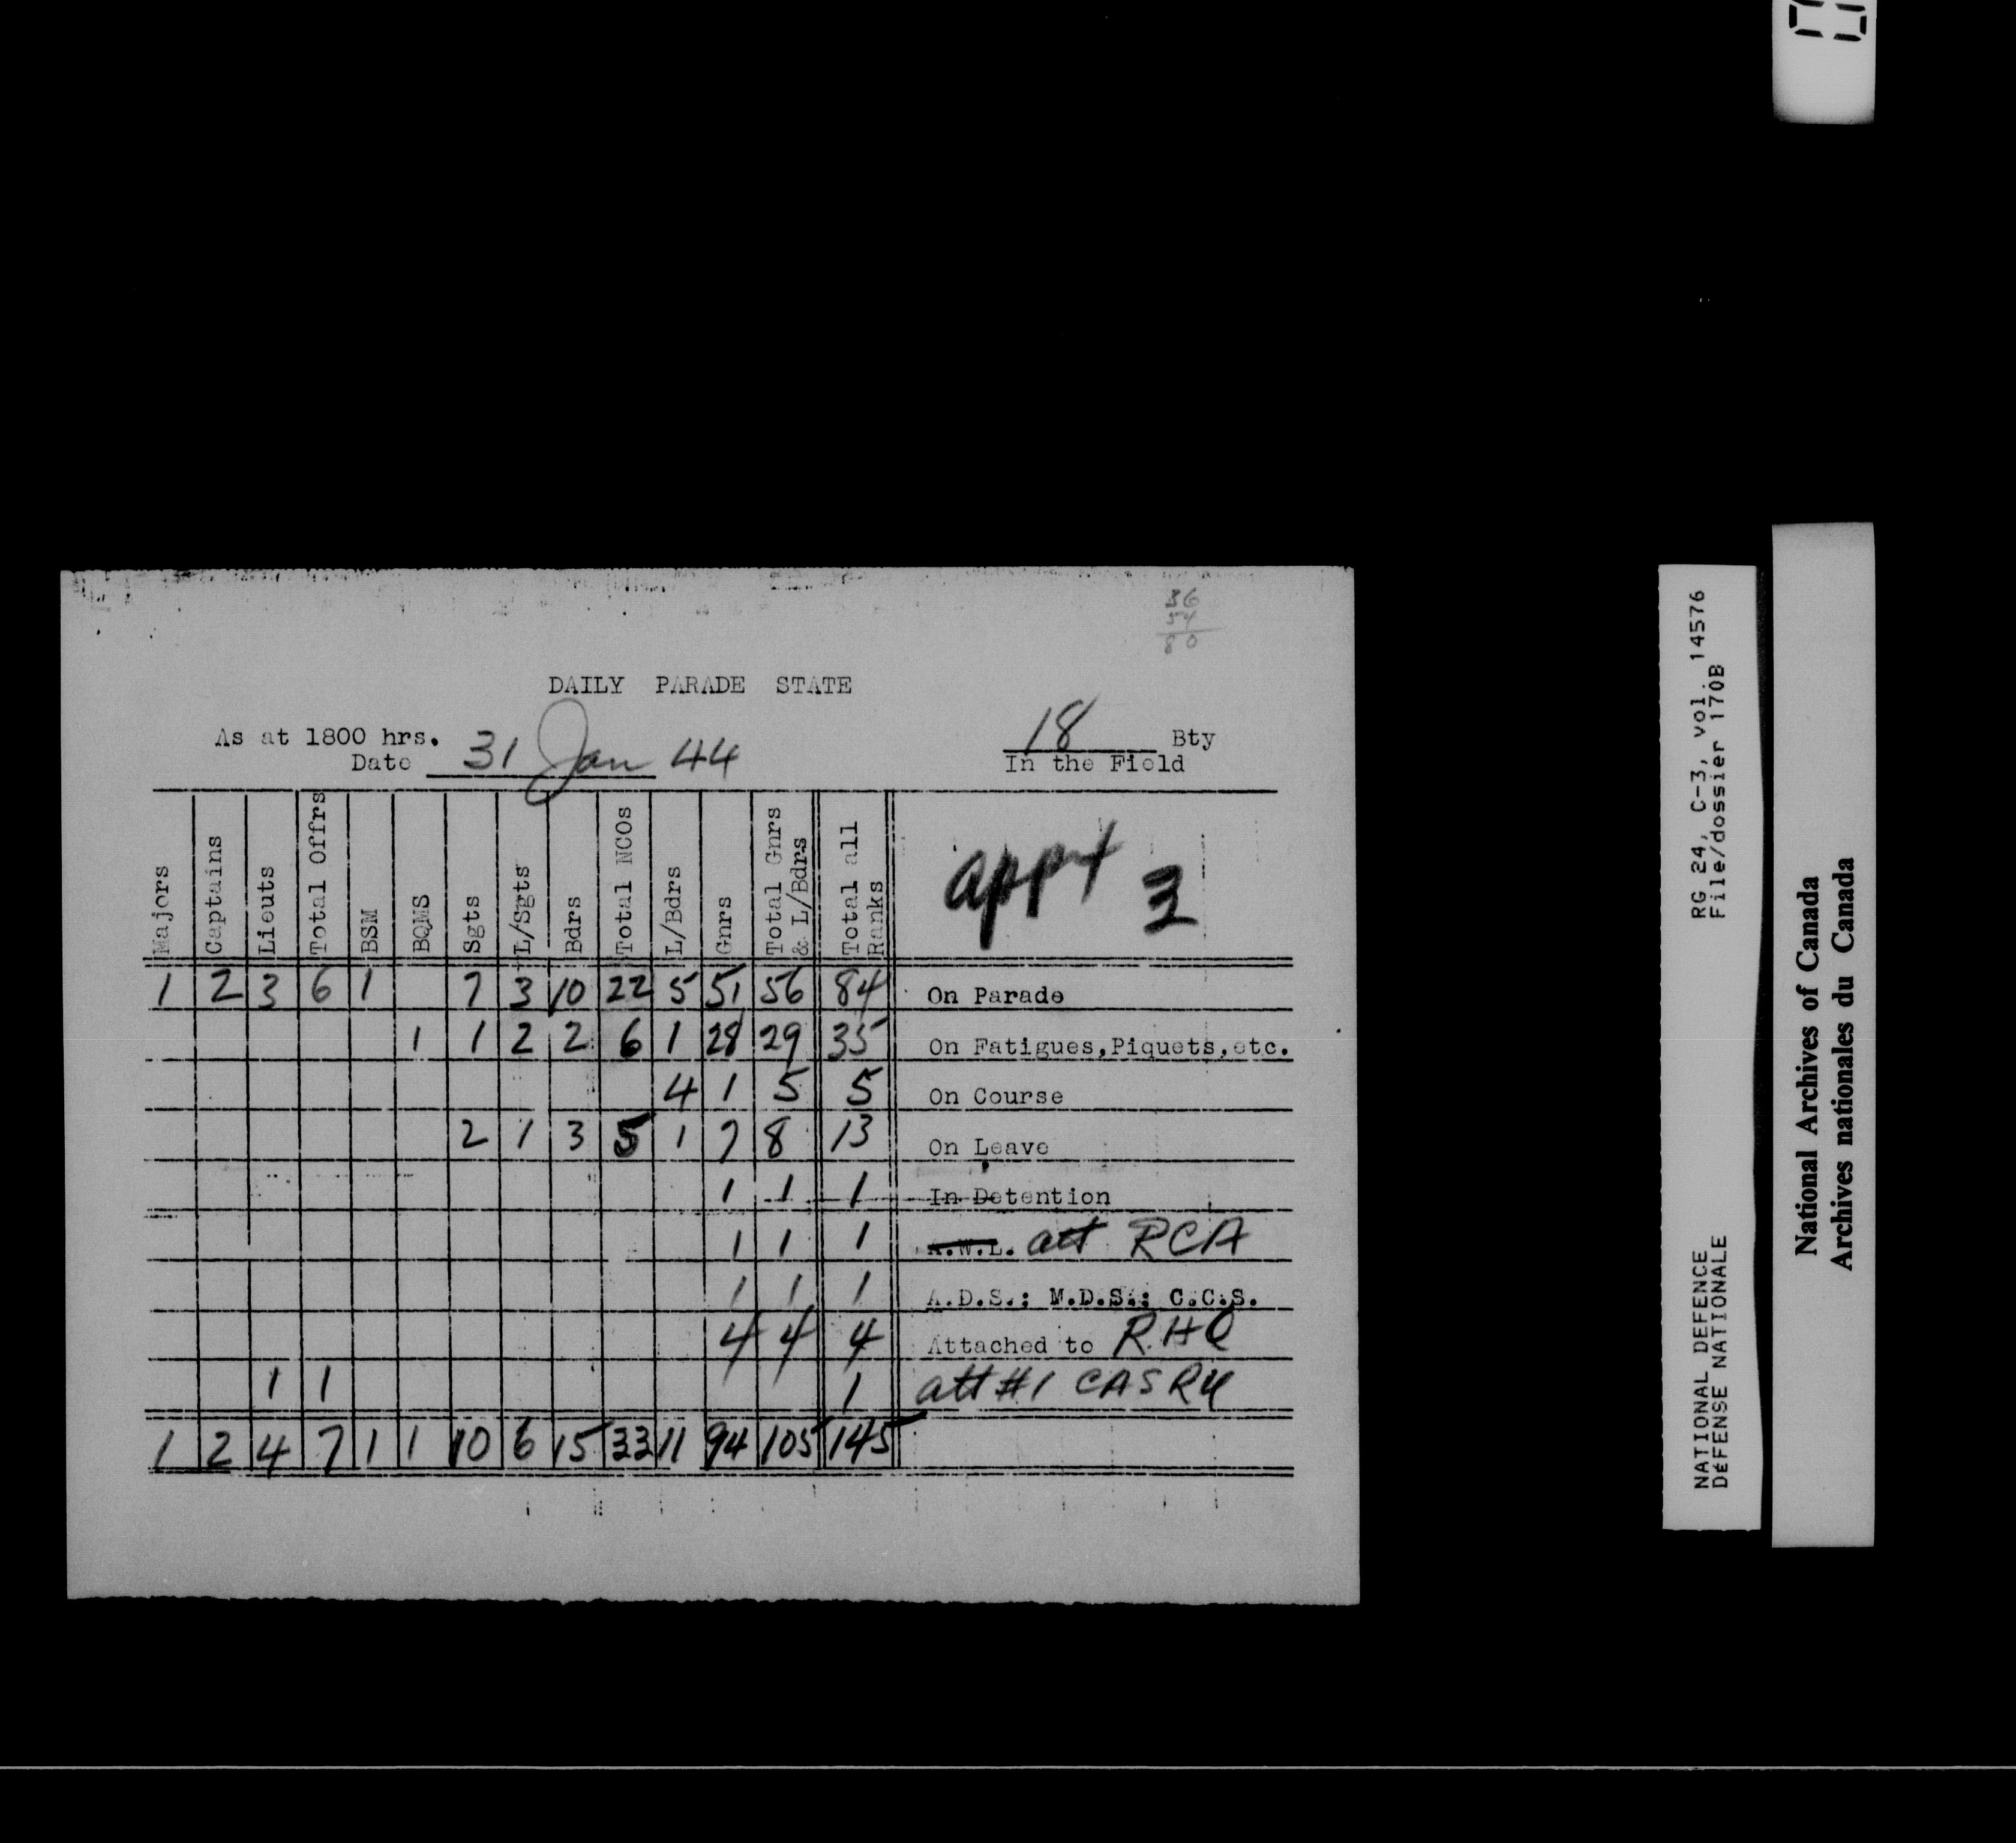 36
54
80
DAILY PARADE STATE
As at 1800 hrs.
Date 31 Jan 44
18 Bty
In the Field
Majors Captains Lieuts Total Offrs BSM BQMS Sgts L/Sgts Bdrs Total NCOs L/Bdrs Gnrs Total Gnrs & L/Bdrs Total all Ranks
appt 3
1 2 3 6 1 7 3 10 22 5 51 56 84 On Parade
1 1 2 2 6 1 28 29 35 On Fatigues,Piquets,etc.
4 1 5 5 On Course
2 1 3 5 1 7 8 13 On Leave
1 1 1 In Detention
1 1 1 A.W.L. att RCA
1 1 1 A.D.S.; M.D.S.; C.C.S.
4 4 4 Attached to RHQ
1 1 1 att #1 CASRU
1 2 4 7 1 1 10 6 15 33 11 94 105 145
RG 24, C-3, vol. 14576
File/dossier 170B
NATIONAL DEFENCE
DÉFENSE NATIONALE
National Archives of Canada
Archives nationales du Canada